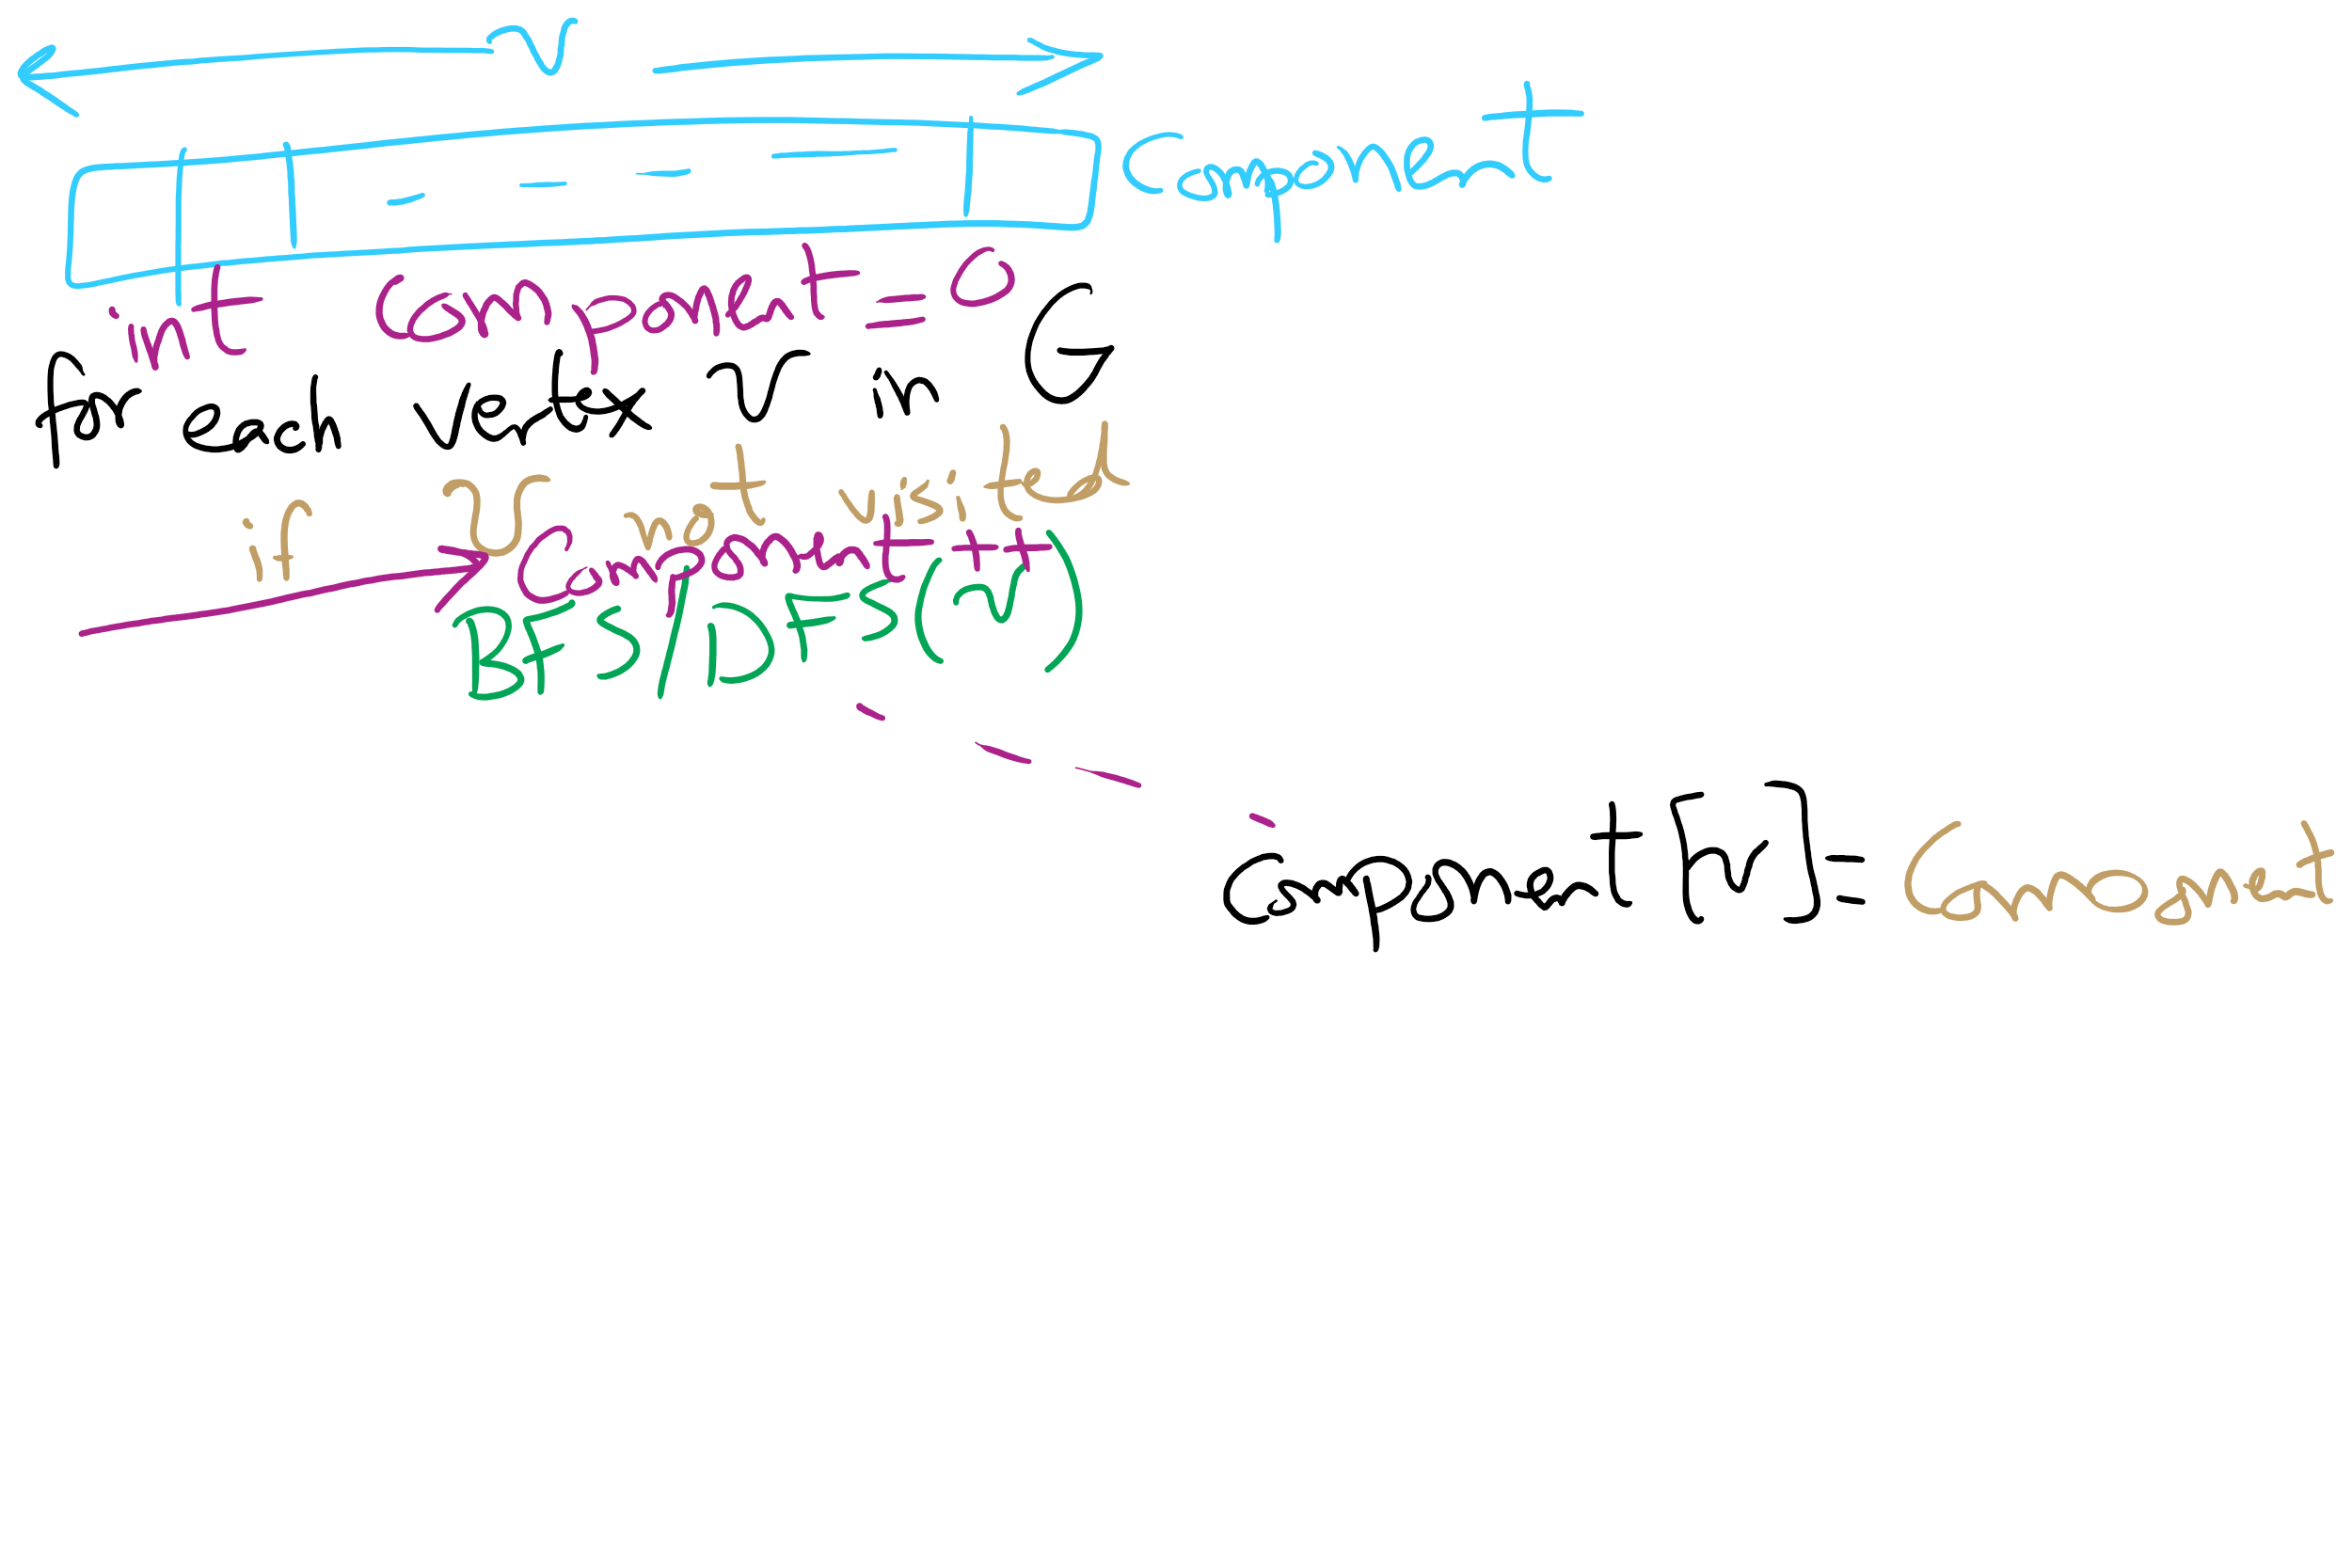 V
component
int component = 0
for each vertex v in G
if v not visited
Component++
BFS/DFS(v)
component[v] = Component